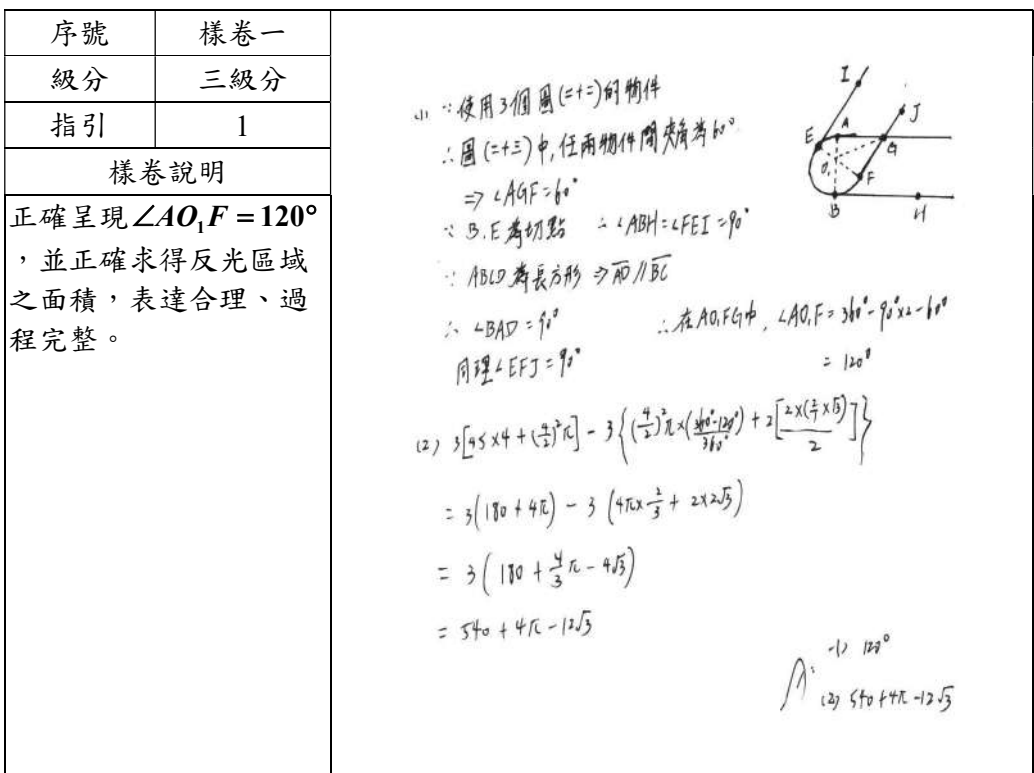 序號 樣卷一
級分 三級分
指引 1
樣卷說明
正確呈現∠AO₁F = 120°
，並正確求得反光區域
之面積，表達合理、過
程完整。
(1) ∵使用3個圖(二十二)的物件
∴圖(二十三)中,任兩物件間夾角為60°
⇒ ∠AGF=60°
∵ B.E為切點 ∴∠ABH=∠FEI=90°
∵ ABCD為長方形 ⇒ AD // BC
∴ ∠BAD=90° ∴在AO₁FG中, ∠AO₁F=360°-90°×2-60°
同理∠EFJ=90° = 120°
I
J
E
A
G
O₁
F
B
H
(2) 3[45×4+(4/2)²π] - 3{(4/2)²π×((360°-120°)/360°) + 2[(2×(2×√3))/2]}
= 3(180+4π) - 3(4π×2/3 + 2×2√3)
= 3(180 + 4/3π - 4√3)
= 540+4π-12√3
A: (1) 120°
(2) 540+4π-12√3